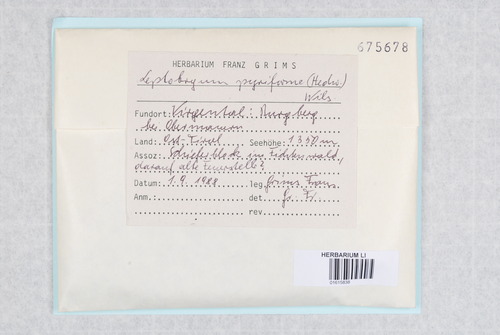 675678
HERBARIUM FRANZ GRIMS
Leptobryum pyriforme (Hedw.)
Wils
Fundort: Virgental: Burgberg
bei Obermauern
Land: Ost-Tirol Seehöhe: 1350 m
Assoz: Schieferblock im Fichtenwald,
darauf alte Feuerstelle?
Datum: 1.9.1988 leg. Grims Franz
Anm.: det. Gr. Fr.
rev.
HERBARIUM LI